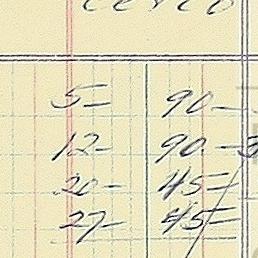 5- 90-
12- 90-3
20- 45-
27- 45-